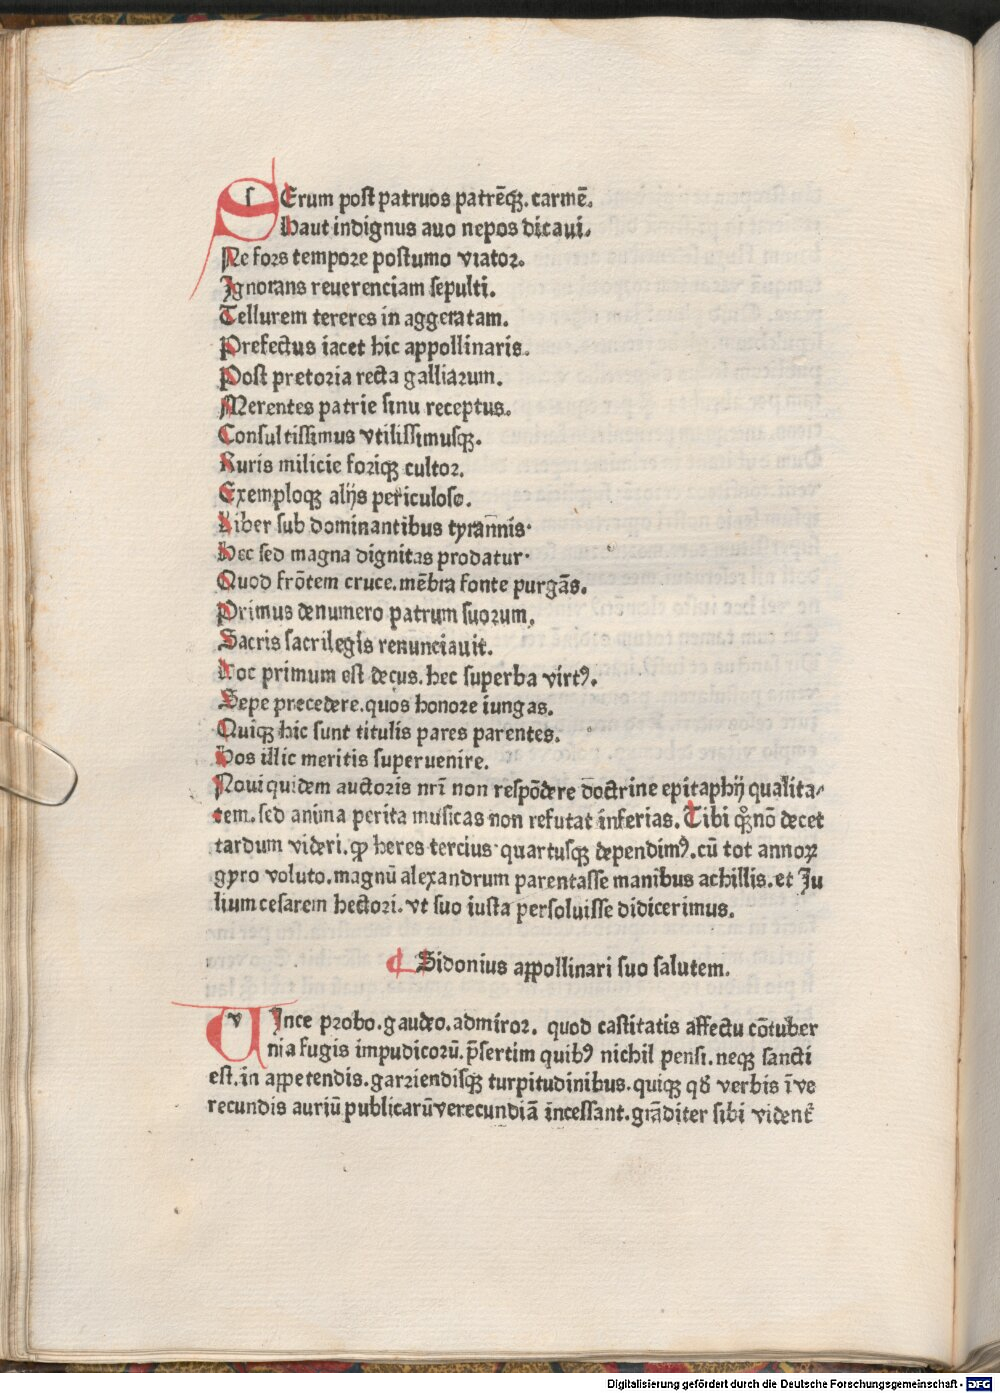 SErum post patruos patrēqꝫ. carmē.
Haut indignus auo nepos dicaui.
Ne fors tempore postumo viator.
Ignorans reuerenciam sepulti.
Tellurem tereres in aggeratam.
Prefectus iacet hic appollinaris.
Post pretoria recta galliarum.
Merentes patrie sinu receptus.
Consultissimus vtilissimusqꝫ.
Ruris milicie foriqꝫ cultor.
Exemploqꝫ alijs periculoso.
Liber sub dominantibus tyrannis·
Hec sed magna dignitas prodatur·
Quod frōtem cruce. mēbra fonte purgās.
Primus de numero patrum suorum.
Sacris sacrilegis renunciauit.
Hoc primum est decus. hec superba virtꝰ.
Sepe precedere. quos honore iungas.
Quiqꝫ hic sunt titulis pares parentes.
Hos illic meritis superuenire.
Noui quidem auctoris nr̄i non respōdere doctrine epitaphij qualita-
tem. sed anima perita musicas non refutat inferias. Tibi qꝫ nō decet
tardum videri. ꝙ heres tercius quartusqꝫ dependimꝰ. cū tot annoꝝ
gyro voluto. magnū alexandrum parentasse manibus achillis. et Ju
lium cesarem hectori. vt suo iusta persoluisse didicerimus.
Sidonius appollinari suo salutem.
VInce probo. gaudeo. admiror. quod castitatis affectu cōtuber
nia fugis impudicorū. p̄sertim quibꝰ nichil pensi. neqꝫ sancti
est. in appetendis. garriendisqꝫ turpitudinibus. quiqꝫ qđ verbis īve
recundis auriū publicarū verecundiā incessant. grāditer sibi vident̄
Digitalisierung gefördert durch die Deutsche Forschungsgemeinschaft - DFG